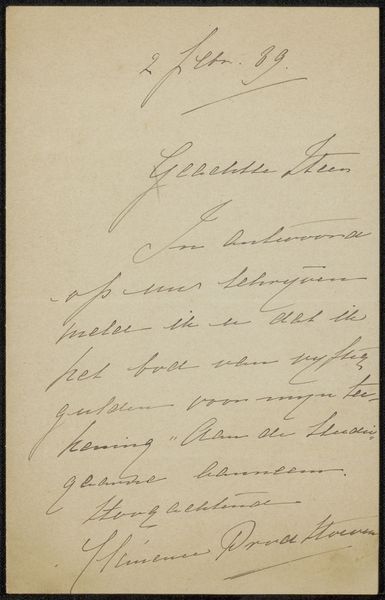 2 Febr. 89.
Geachte Heer
In antwoord
op uw schrijven
melde ik u dat ik
het bod van vijftig
gulden voor mijn tee-
kening "Aan de Studie"
gaarne aanneem.
Hoogachtend